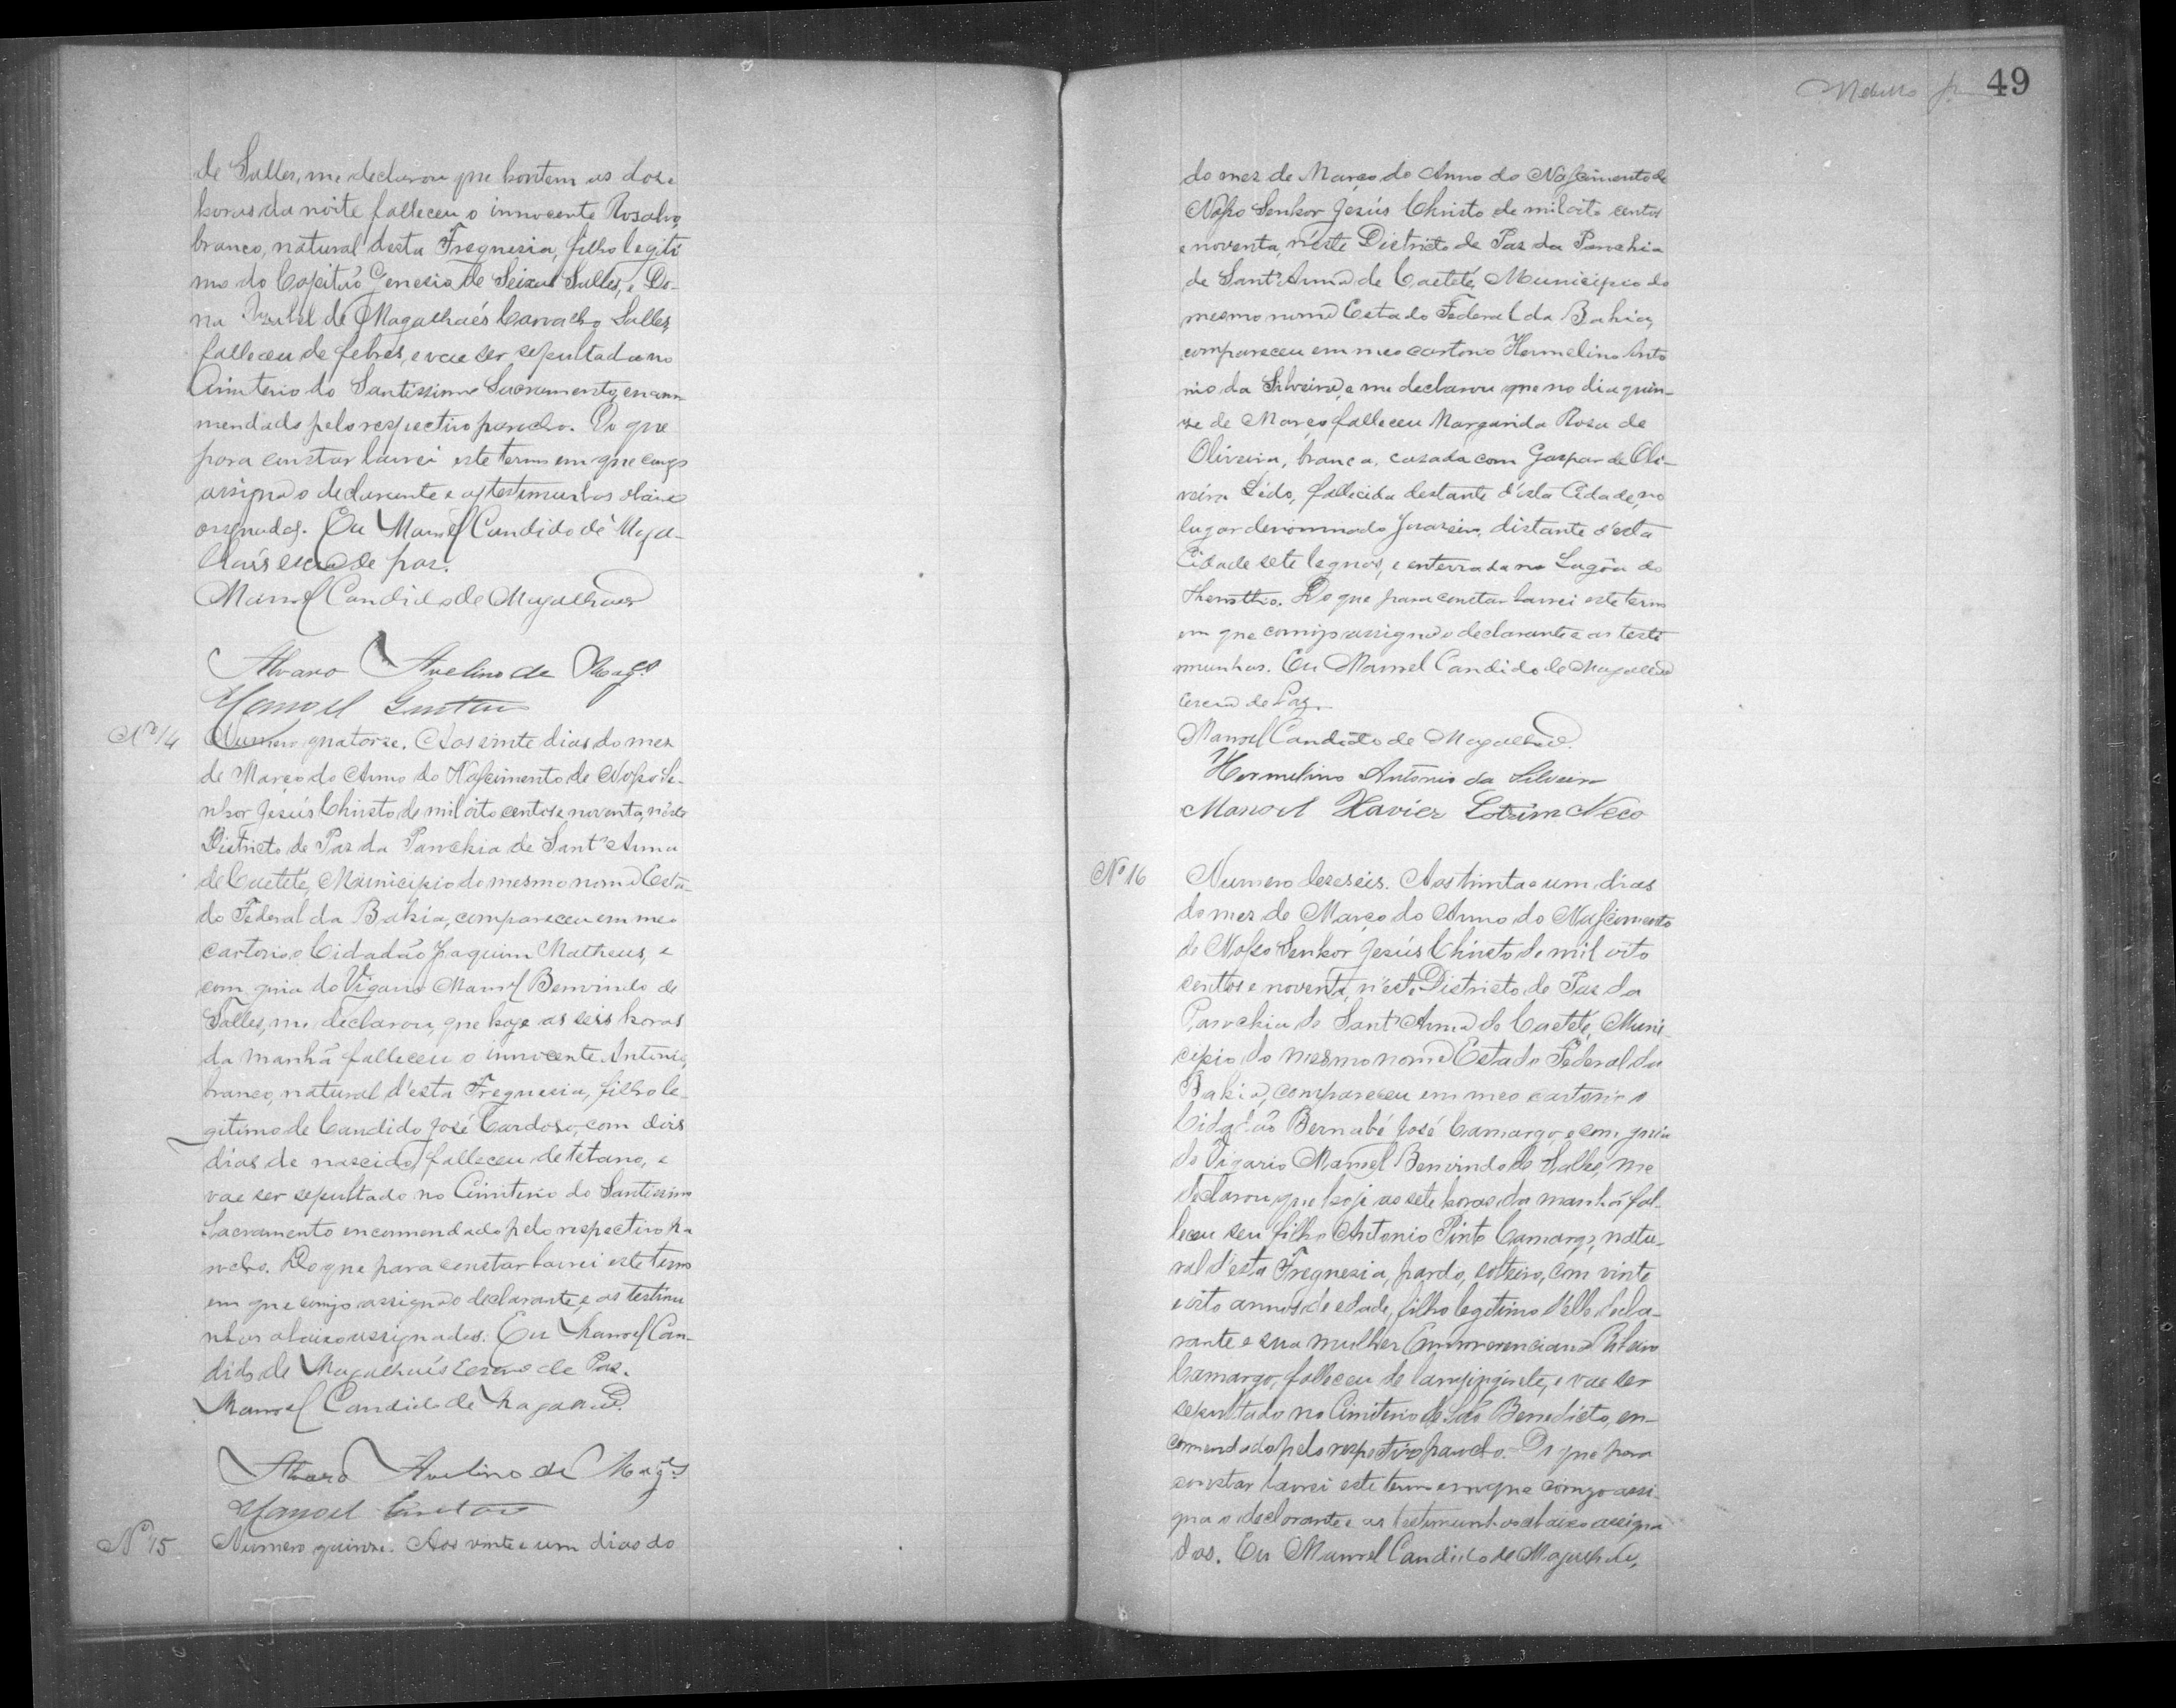 de Salles, me declarou que hontem as doze
horas da noite falleceu o innocente Rosalvo,
branco, natural desta Freguesia, filho legiti
mo do Capitão Genesio de Seixas Salles, e Do-
na Izabel de Magalhaés Carvalho Salles
falleceu de febres, e vae ser sepultado no
Cimiterio do Santissimo Sacramento, encom
mendado pelo respectivo parocho. Do que
para constar lavrei este termo em que comigo
assigna o declarante e as testemunhas abaixo
assignadas. Eu Manoel Candido de Maga-
lhaés escrão de paz.
Manoel Candido de Magalhaes
Alvaro Avelino de Mages
Manoel Gustavo
No 14
Numero quatorze. Aos vinte dias do mez
de Março do Anno do Nascimento de Nosso Se-
nhor Jesús Christo de mil oito centos e noventa, néste
Districto de Paz da Parochia de Sant'Anna
de Caeteté, Municipio do mesmo nome Esta-
do Federal da Bahia, compareceu em meo
cartorio o Cidadão Joaquim Matheus, e
com guia do Vigario Manoel Benvindo de
Salles, me declarou, que hoje as seis horas
da manhã falleceu o innocente Antonio,
branco, natural d'esta Freguesia, filho le-
gitimo de Candido José Cardoso, com dois
dias de nascido, falleceu de tetano, e
vae ser sepultado no Cimiterio do Santissimo
Sacramento encommendado pelo respectivo pa
rocho. Do que para constar lavrei este termo
em que comigo assigna o declarante, e as testimu
nhas abaixo assignadas. Eu Manoel Can-
dido de Magalhaés Escrão de Paz.
Manoel Candido de Magalhaes
Alvaro Avelino de Mages
Manoel Gustavo
No 15
Numero quinze. Aos vinte e um dias do
49
do mez de Março do Anno do Nascimento de
Nosso Senhor Jesús Christo de mil oito centos
e noventa, n'éste Districto de Paz da Parochia
de Sant'Anna de Caeteté, Municipio do
mesmo nome Estado Federal da Bahia,
compareceu em meo cartorio Hermelino Anto
nio da Silveira, e me declarou que no dia quin-
ze de Março falleceu Margarida Rosa de
Oliveira, branca, casada com Gaspar de Oli-
veira Lédo, fallecida destante d'ésta Cidade, no
lugar denominado Joaseiro, distante d'ésta
Cidade sete legoas, e enterrada na Lagôa do
Do que para constar lavrei este termo
em que comigo assigna o declarante e as teste
munhas. Eu Manoel Candido de Magalhaes
Escrão de Paz.
Manoel Candido de Magalhaes.
Hermelino Antonio da Silveira
Manoel Xavier Cotrim Neco
No 16
Numero dezeseis. Aos trinta e um dias
do mez de Março do Anno do Nascimento
de Nosso Senhor Jesús Christo de mil oito
centos e noventa, n'éste Districto de Paz da
Parochia de Sant'Anna de Caeteté, Muni
cipio do mesmo nome Estado Federal da
Bahia, compareceu em meo cartorio o
Cidadão Bernabé José Camargo, e com guia
do Vigario Manoel Benvindo de Salles, me
declarou que hoje as sete horas da manhã fal-
leceu seu filho Antonio Pinto Camargo, natu-
ral d'ésta Freguesia, pardo, solteiro, com vinte
e oito annos de edade, filho legitimo d'elle decla-
rante e sua mulher Ribeiro
Camargo, falleceu de e vae ser
sepultado no Cimiterio de São Benedicto, en-
commendado pelo respectivo parocho. Do que para
constar lavrei este termo em que comigo assi-
gna o declarante e as testimunhas abaixo assigna
das. Eu Manoel Candido de Magalhães,